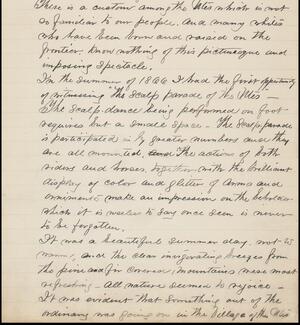 There is a custom among the Utes which is not
so familiar to our people, and many whites
who have been born and raised on the
frontier, know nothing of this picturesque and
imposing spectacle.
In the summer of 1866 I had the first opportunity
of witnessing "the Scalp parade of the Utes —
The Scalp dance being performed on foot
requires but a small space — The Scalp parade
is participated in by greater numbers and they
are all mounted, and the actions of both
riders and horses, together with the brilliant
display of color and glitter of arms and
orniments make an impression on the beholder
which it is useless to say once seen is never
to be forgotten.
It was a beautiful summer day, not to
warm, and the clear invigorating breezes from
the pine and fir covered mountains were most
refreshing — All nature seemed to rejoice —
It was evident that something out of the
ordinary was going on in the Village of the Utes